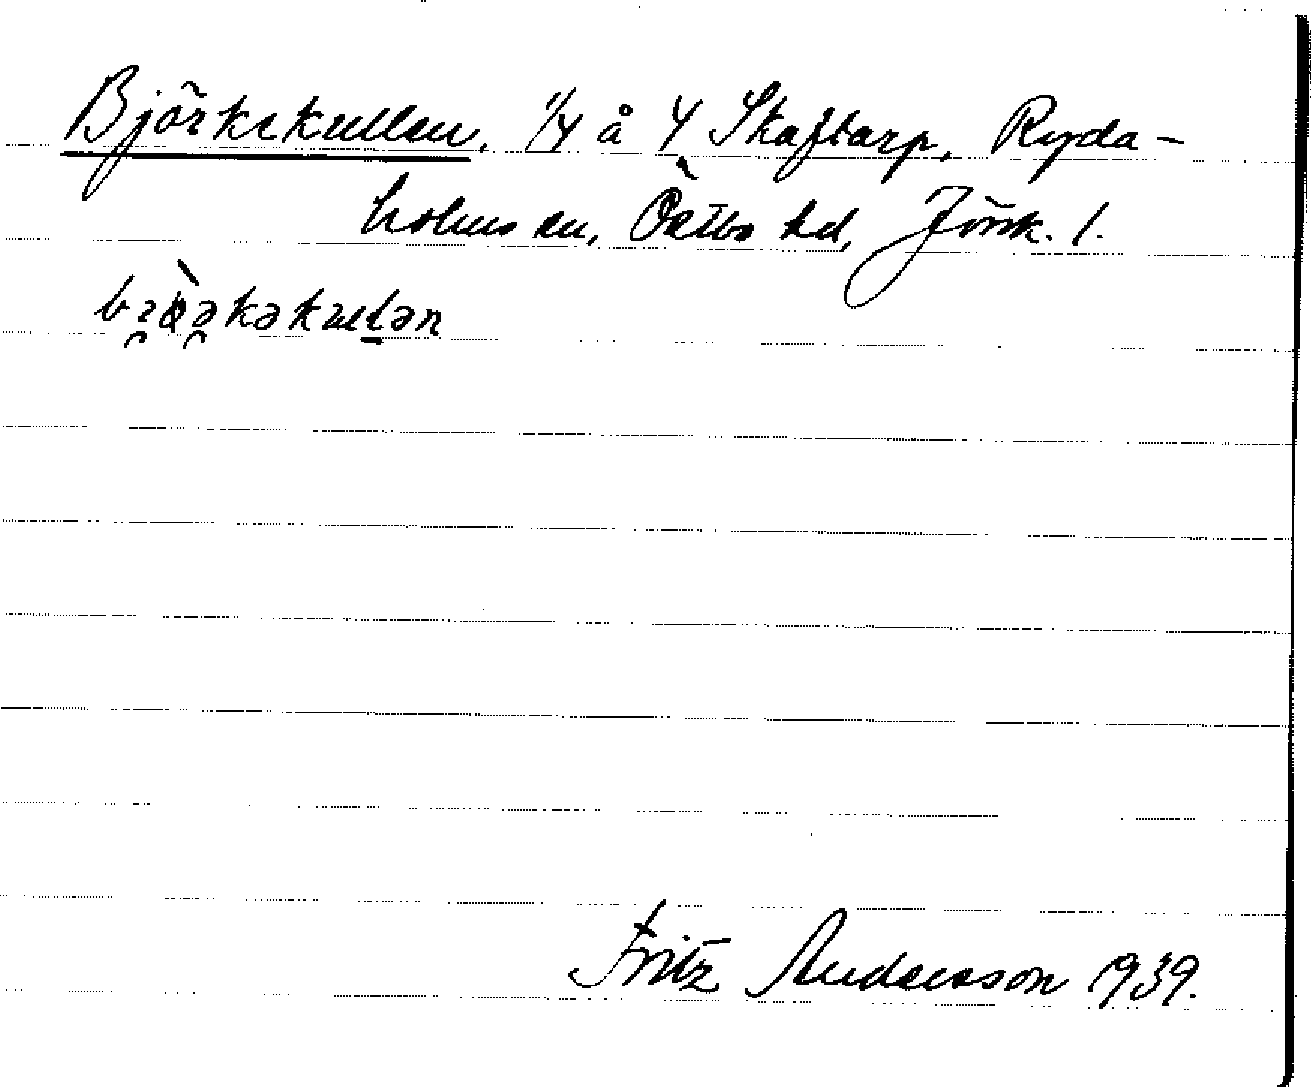 Björkekullen, 1/4 å 4 Skaftarp, Ryda-
holms sn, Östbo hd, Jönk. l.
Fritz Andersson 1939.